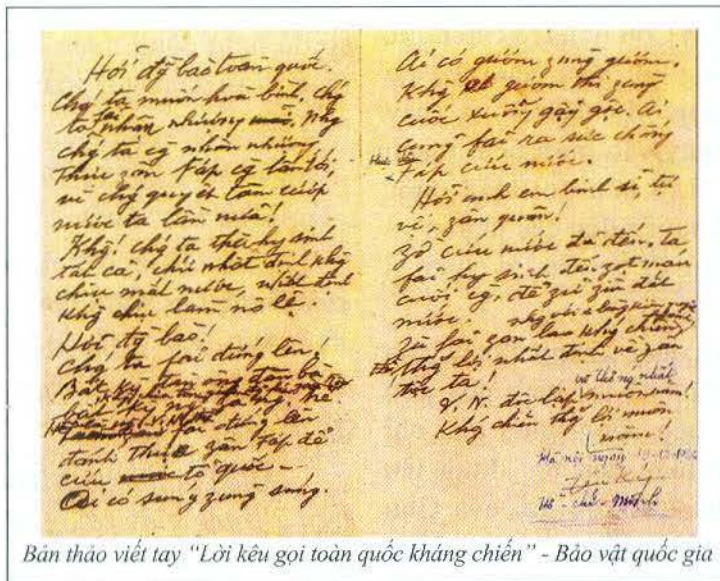 Hỡi đg bào toàn quốc.
Chg ta muốn hoà bình, chg
ta fải nhân nhượng. Nhg
chg ta cg nhân nhượng,
Thực zân Fáp cg lấn tới,
vì chg quyết tâm cướp
nước ta lần nữa!
Khg! chg ta thà hy sinh
tất cả, chứ nhất định khg
chịu mất nước, nhất định
khg chịu làm nô lệ.
Hỡi đg bào!
Chg ta fải đứng lên!
Bất kỳ đàn ông đàn bà
bất kỳ
fải đứng lên
đánh thực zân Fáp để
cứu tổ quốc –
Ai có súng zùng súng.
Ai có gươm zùng gươm.
Khg gươm thì zùng
cuốc xuổng gậy gộc. Ai
cũng fải ra sức chống
Fáp cứu nước.
Hỡi anh em binh sĩ, tự
vệ, zân quân!
Zờ cứu nước đã đến. Ta
fải hy sinh đến zọt máu
cuối cg, để zữ zìn đất
nước.
Zù fải zan lao khg chiến
thắg lợi nhất định về zân
tộc ta!
và thống nhất
V.N. độc lập muôn năm!
Khg chiến thắg lợi muôn
năm!
Hà nội ngày
Hồ - chí - Minh
Bản thảo viết tay “Lời kêu gọi toàn quốc kháng chiến” - Bảo vật quốc gia